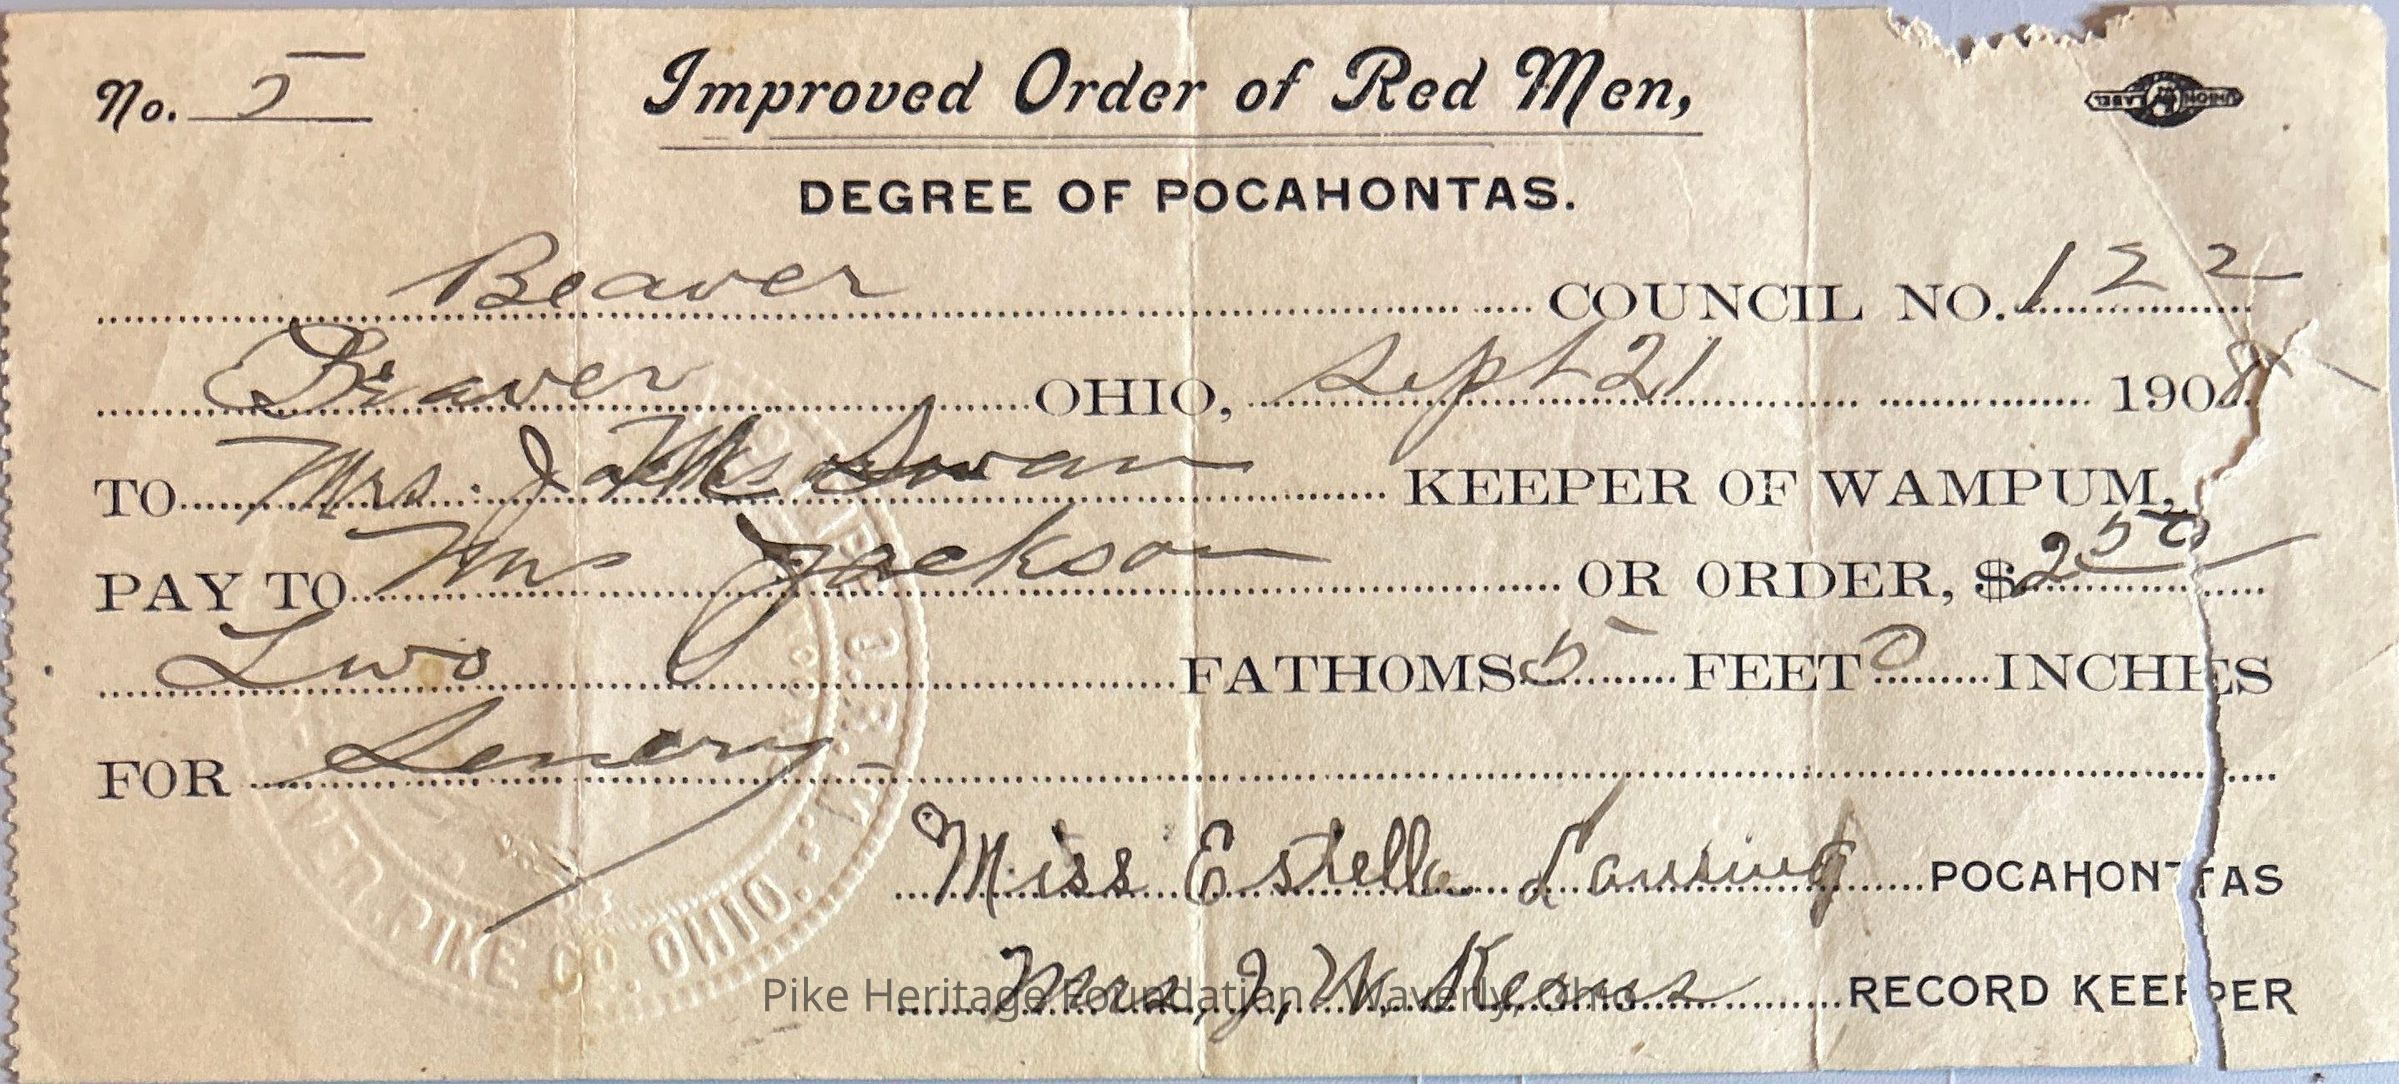 No. 5
Improved Order of Red Men,
UNION LABEL
DEGREE OF POCAHONTAS.
Beaver COUNCIL NO. 122
Beaver OHIO, Sept 21 1908
TO Mrs. Swan KEEPER OF WAMPUM,
PAY TO Mrs Jackson OR ORDER, $2 50
Two FATHOMS 5 FEET 0 INCHES
FOR
Miss Estella Lansing POCAHONTAS
Mrs, J, W. Keons RECORD KEEPER
PIKE CO. OHIO.
Pike Heritage Foundation - Waverly, Ohio